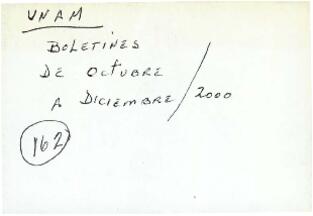 UNAM
BOLETINES
DE OCTUBRE
A DICIEMBRE / 2000
162